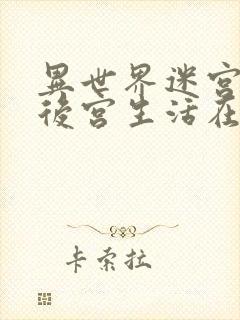 異世界迷宮
後宮生活在
卡索拉